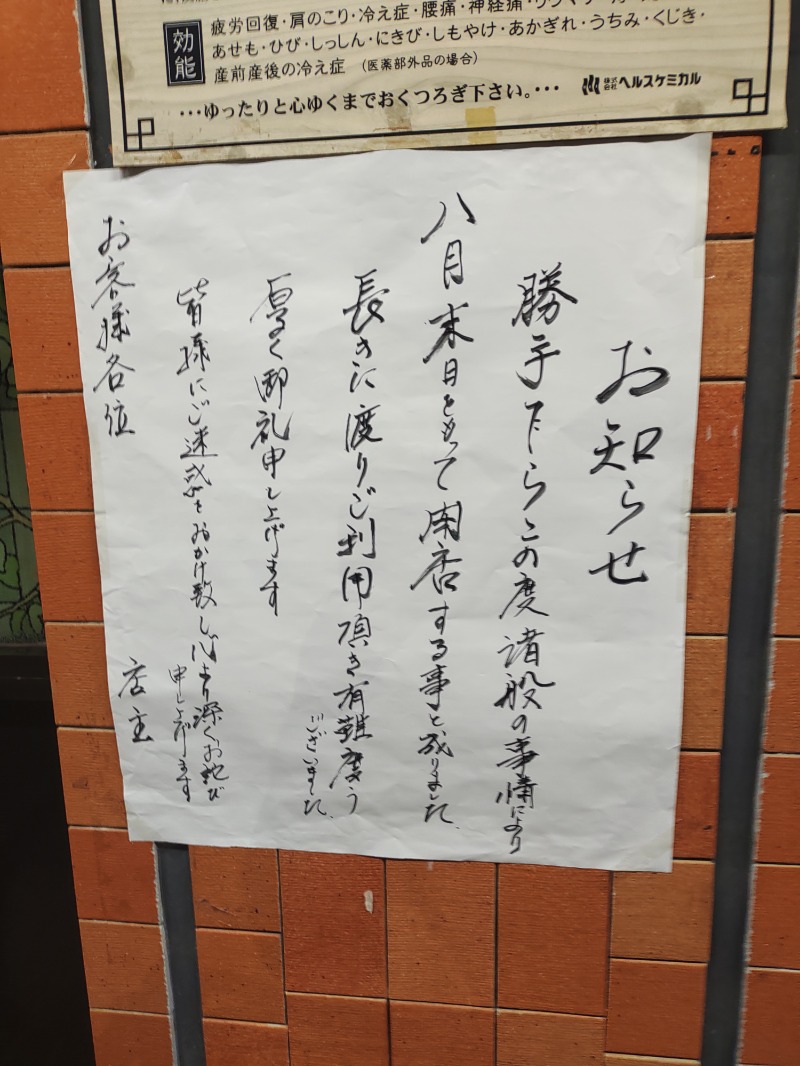 効能
疲労回復・肩のこり・冷え症・腰痛・神経痛・リウマチ・
あせも・ひび・しっしん・にきび・しもやけ・あかぎれ・うちみ・くじき・
産前産後の冷え症 (医薬部外品の場合)
・・・ゆったりと心ゆくまでおくつろぎ下さい。・・・
株式会社ヘルスケミカル
お知らせ
勝手下らこの度諸般の事情により
八月末日をもって閉店する事と成りました、
長きに渡りご利用頂き有難度う
ございました、
厚く御礼申し上げます
皆様にご迷惑をおかけ致し心より深くお詫び
申し上げます
店主
お客様各位